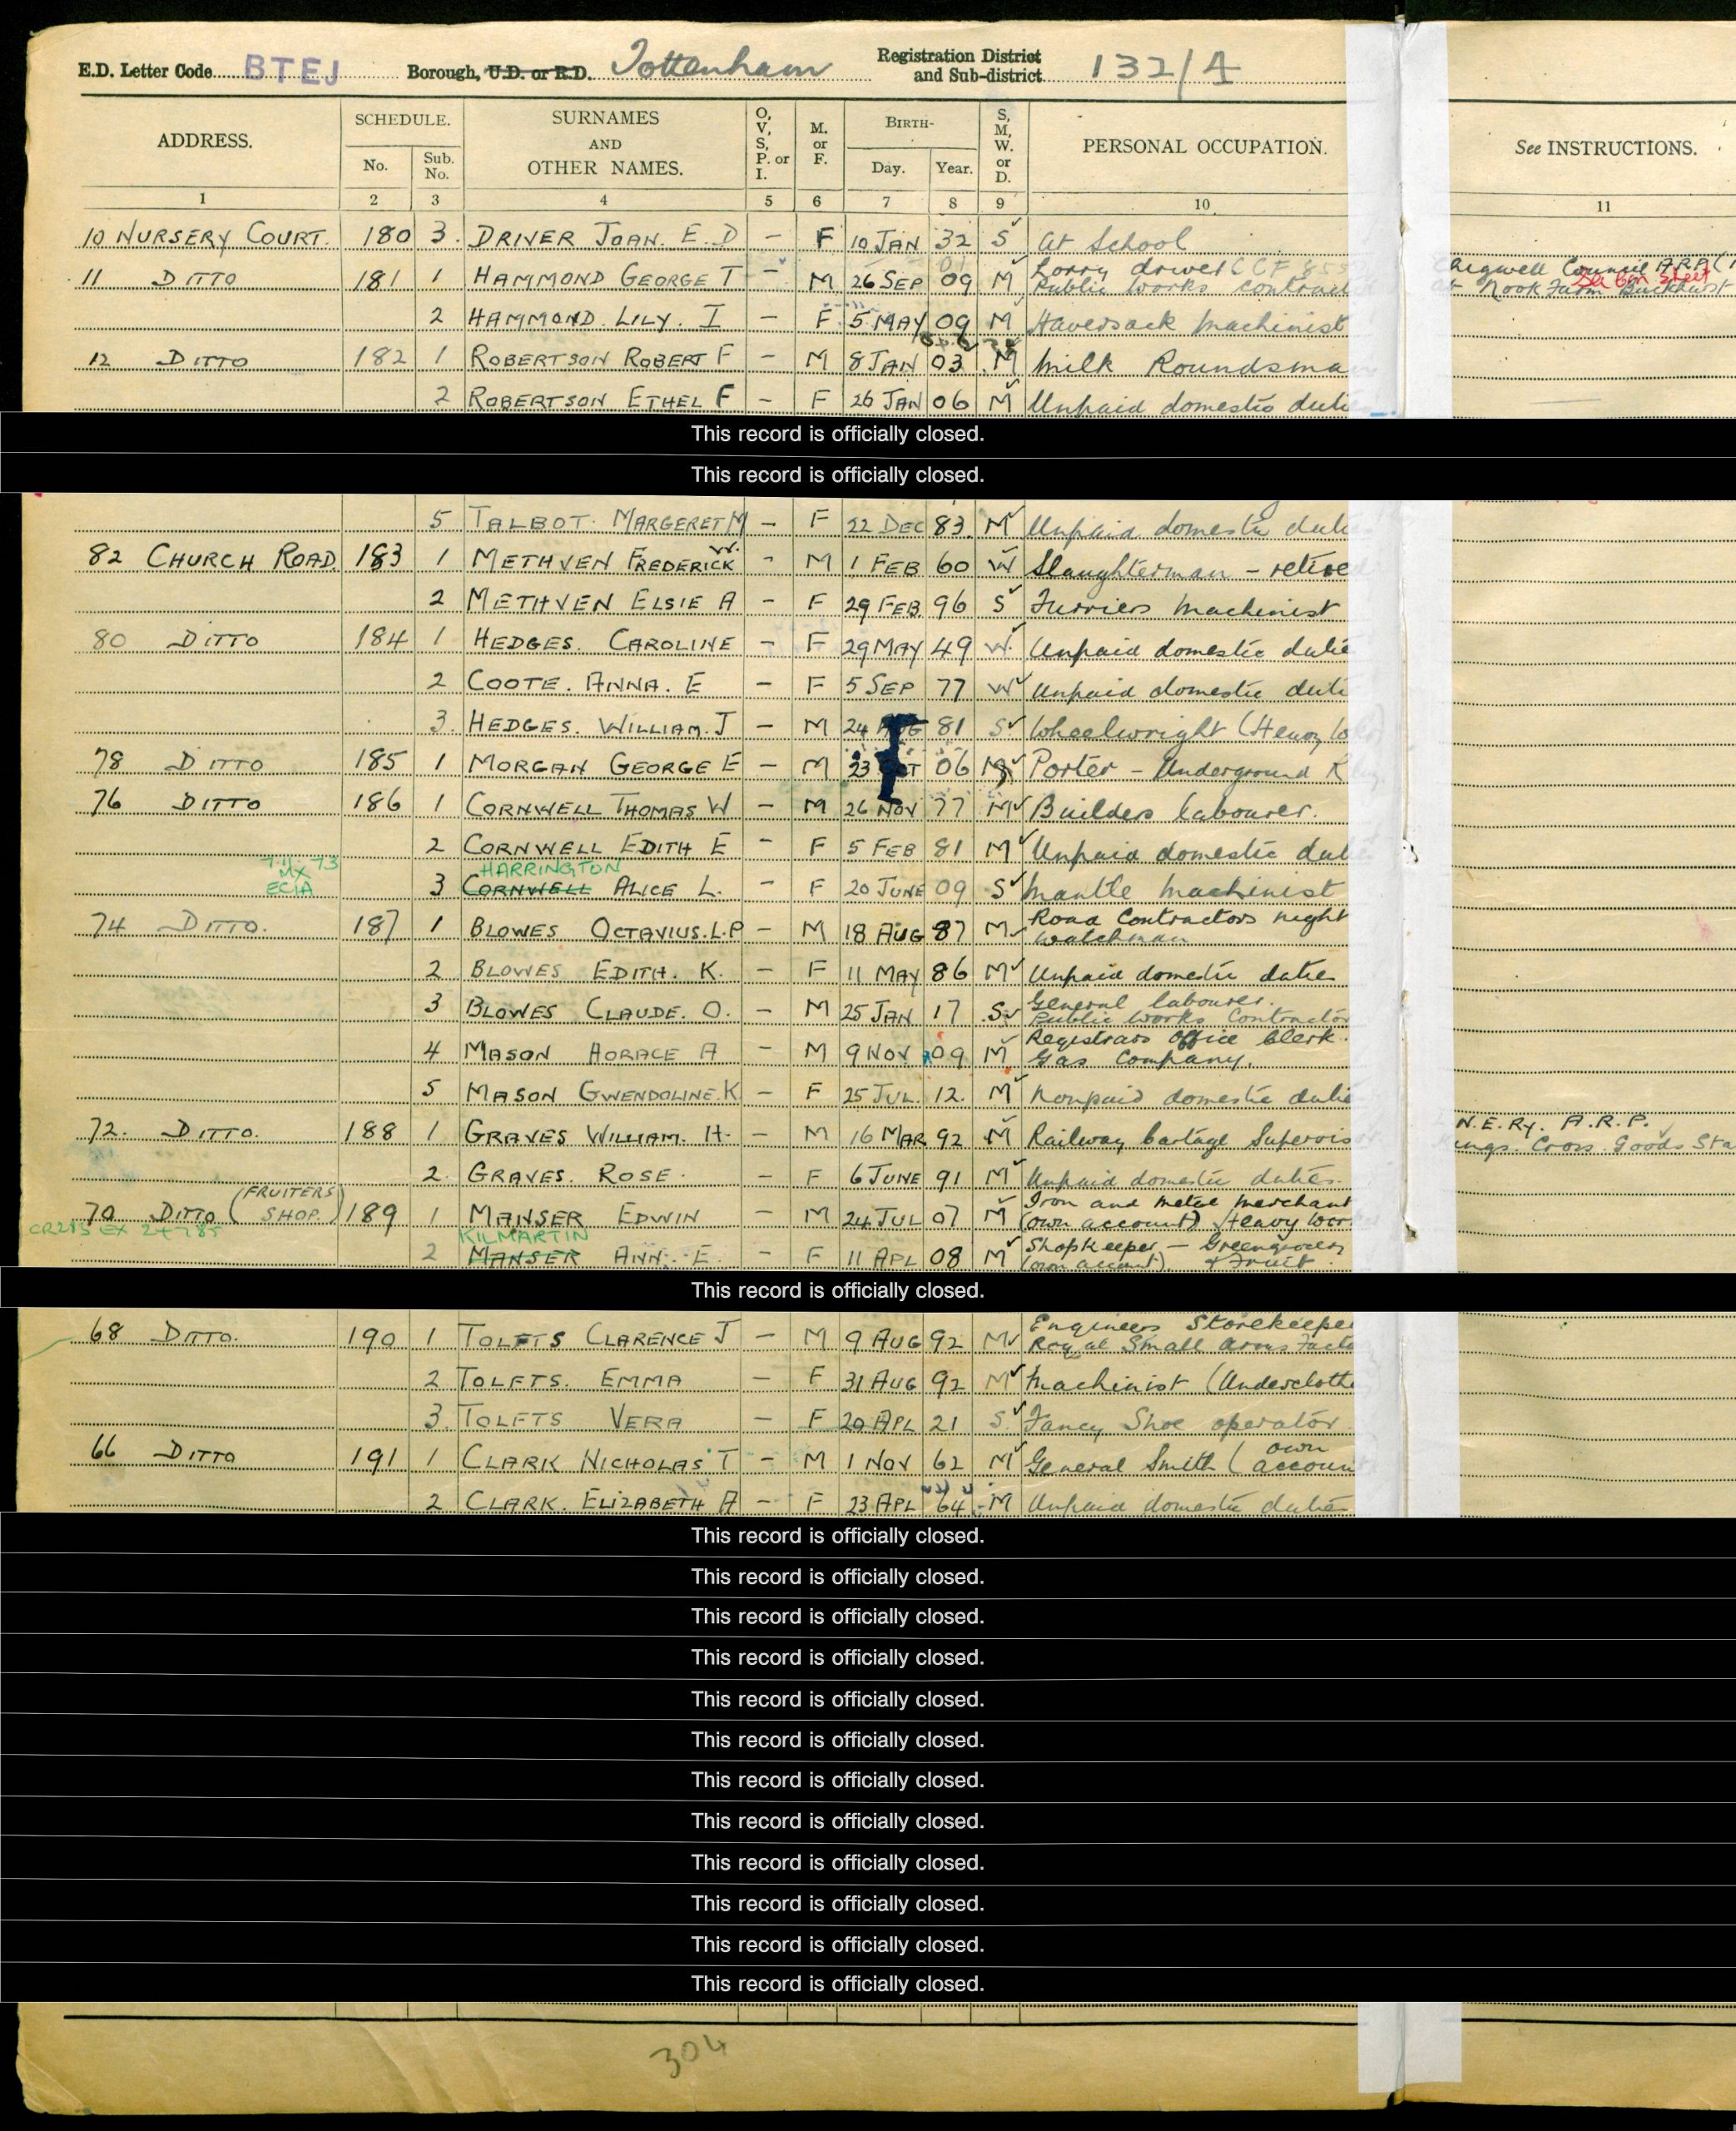 E.D. Letter Code BTEJ Borough, U.D. or R.D. Tottenham Registration District and Sub-district 132/A
ADDRESS. SCHEDULE. No. Sub. No. SURNAMES AND OTHER NAMES. O, V, S, P. or I. M. or F. BIRTH- Day. Year. S, M, W. or D. PERSONAL OCCUPATION. See INSTRUCTIONS.
1 2 3 4 5 6 7 8 9 10 11
10 NURSERY COURT. 180 3. DRIVER JOAN. E. D – F 10 JAN 32 S At School
11 DITTO 181 1 HAMMOND GEORGE T – M 26 SEP 09 M Lorry driver CCF
Public Works Contract Chigwell Council A.R.P.
at Nook Farm Buckhurst
2 HAMMOND. LILY. I – F 5 MAY 09 M Haversack Machinist
12 DITTO 182 1 ROBERTSON ROBERT F – M 8 JAN 03 M Milk Roundsma
2 ROBERTSON ETHEL F – F 26 JAN 06 M Unpaid domestic dutie
This record is officially closed.
This record is officially closed.
5 TALBOT. MARGERET M – F 22 DEC 83. M Unpaid domestic dutie
82 CHURCH ROAD. 183 1 METHVEN FREDERICK W. - M 1 FEB 60 W Slaughterman - retired
2 METHVEN ELSIE A – F 29 FEB. 96 S Furriers Machinist
80 DITTO 184 1 HEDGES. CAROLINE – F 29 MAY 49 W. Unpaid domestic dutie
2 COOTE. ANNA. E – F 5 SEP 77 W Unpaid domestic duti
3. HEDGES. WILLIAM. J – M 24 AUG 81 S Wheelwright (Heavy
78 DITTO 185 1 MORGAN GEORGE E – M 23 OCT 06 M Porter - Underground
76 DITTO 186 1 CORNWELL THOMAS W – M 26 NOV 77 M Builders labourer.
2 CORNWELL EDITH E – F 5 FEB 81 M Unpaid domestic dut
MX ECIA HARRINGTON
3 CORNWELL ALICE L. – F 20 JUNE 09 S Mantle Machinist
74 DITTO. 187 1 BLOWES OCTAVIUS. L. P – M 18 AUG 87 M Road Contractors night
Watchman
2 BLOWES EDITH. K. – F 11 MAY 86 M Unpaid domestic duties
3 BLOWES CLAUDE. O. – M 25 JAN 17 S General labourer.
Public Works Contractor
4 MASON HORACE A – M 9 NOV 09 M Registrars Office Clerk.
Gas Company.
5 MASON GWENDOLINE. K – F 25 JUL. 12. M Nonpaid domestic dutie
72. DITTO. 188 1 GRAVES WILLIAM. H. – M 16 MAR 92 M Railway Cartage Supervis N.E. Ry. A.R.P.
Kings. Cross. Goods Sta
2. GRAVES. ROSE. – F 6 JUNE 91 M Unpaid domestic duties.
70 DITTO (FRUITERS SHOP.) 189 1 MANSER EDWIN – M 24 JUL 07 M Iron and Metal Merchant
(own account) Heavy Work
KILMARTIN
2 MANSER ANN. E. – F 11 APL 08 M Shopkeeper - Greengrocery
(own account). & Fruit.
This record is officially closed.
68 DITTO. 190 1 TOLFTS CLARENCE J – M 9 AUG 92 M Engineers Storekeeper
Royal Small Arms Facto
2 TOLFTS. EMMA – F 31 AUG 92 M Machinist (Undercloth
3. TOLFTS VERA – F 20 APL 21 S. Fancy Shoe operator
66 DITTO 191 1 CLARK NICHOLAS T – M 1 NOV 62 M General Smith (own account
2 CLARK. ELIZABETH A – F 23 APL 64 M Unpaid domestic duties
This record is officially closed.
This record is officially closed.
This record is officially closed.
This record is officially closed.
This record is officially closed.
This record is officially closed.
This record is officially closed.
This record is officially closed.
This record is officially closed.
This record is officially closed.
This record is officially closed.
This record is officially closed.
304